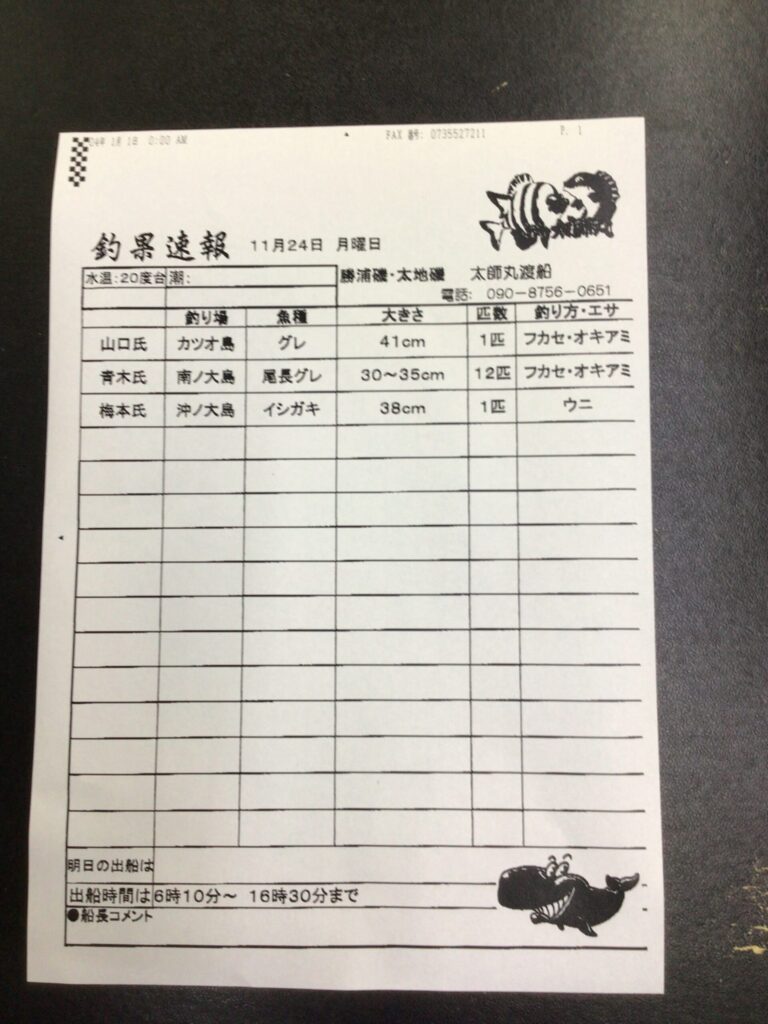 04年 1月 1日 0:00 AM FAX 番号: 0735527211 P. 1
釣果速報 11月24日 月曜日
水温:20度台 潮: 勝浦磯・太地磯 太師丸渡船
電話: 090-8756-0651
釣り場 魚種 大きさ 匹数 釣り方・エサ
山口氏 カツオ島 グレ 41cm 1匹 フカセ・オキアミ
青木氏 南ノ大島 尾長グレ 30〜35cm 12匹 フカセ・オキアミ
梅本氏 沖ノ大島 イシガキ 38cm 1匹 ウニ
明日の出船は
出船時間は6時10分〜 16時30分まで
●船長コメント